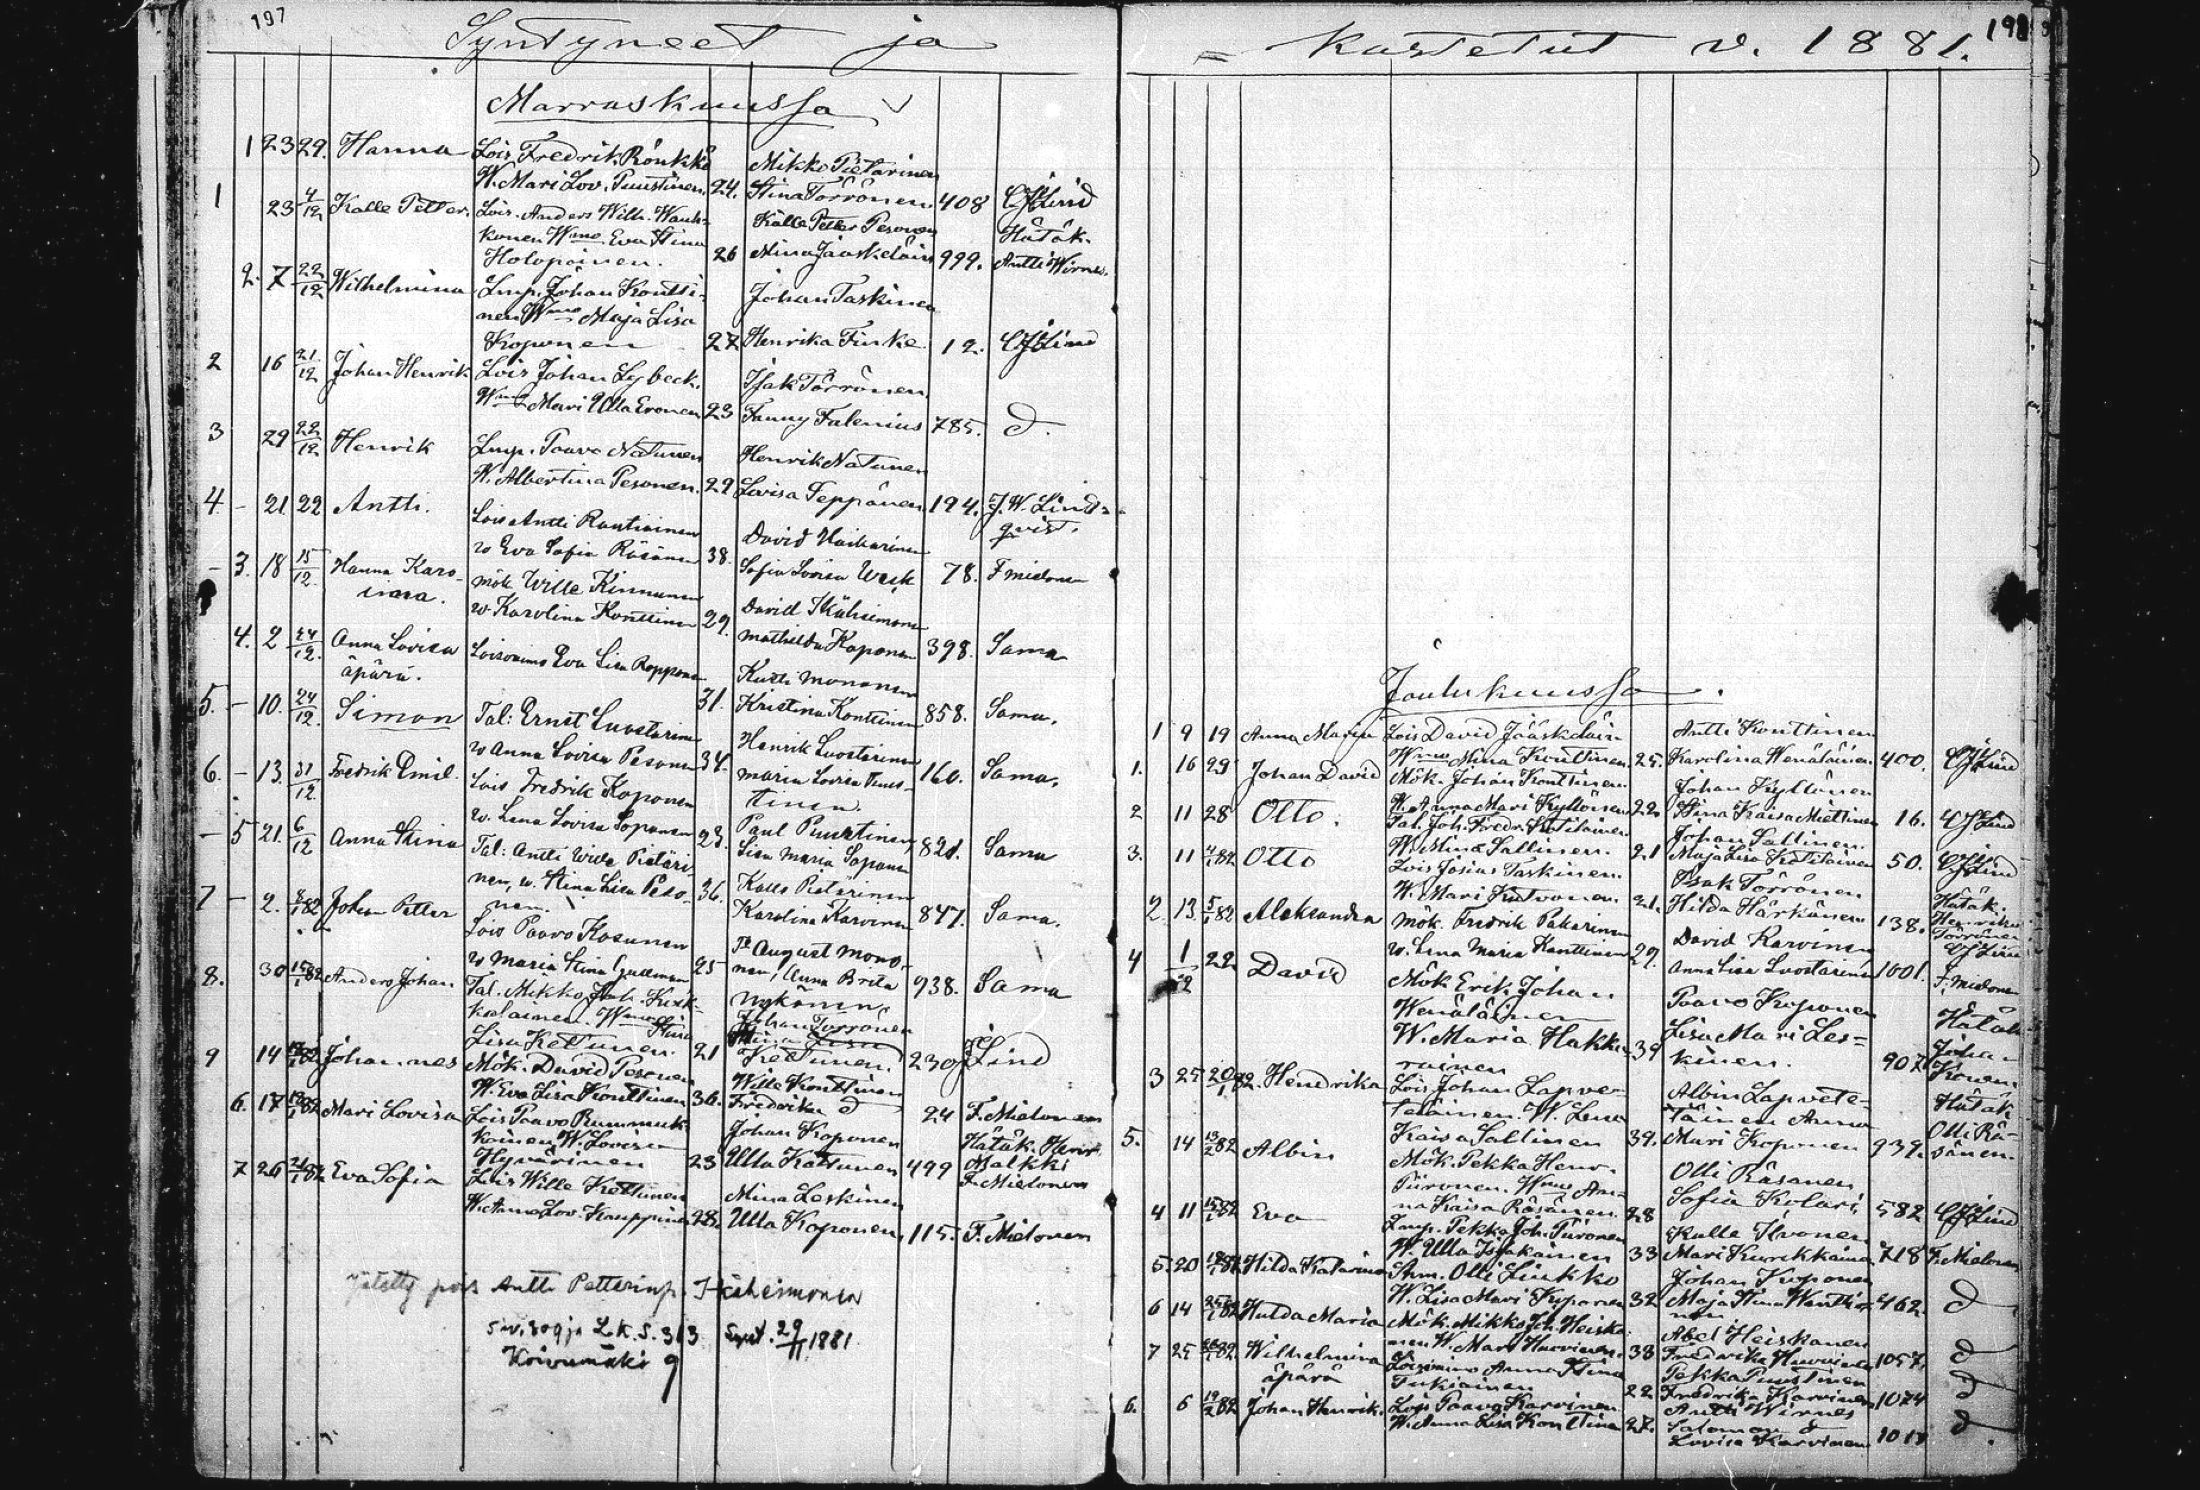 197
Syntyneet ja
Marraskuussa
1 23 29. Hanna Lois Fredrik Rönkkö Mikko Pietarinen
W. Mari Lov. Puustinen. 24. Stina Törrönen. 408 CJLind
1 23 4/12 Kalle Petter. Lois. Anders Wilh. Wauh- Kalle Petter Pesonen Hätäk.
konen Wmo Eva Stina
Holopainen. 26 Mina Jääskeläin 999. Antti Wirnes.
2. 7 22/12 Wilhelmina Lmp. Johan Kontti- Johan Taskinen
nen Wmo Maja Lisa
Koponen 27 Henrika Finke. 12. CJLind
2 16 21/12 Johan Henrik Lois Johan Lybeck. Isak Törrönen
Wmo Mari Ulla Eronen 23 Fanny Falenius 785. d.
3 29 22/12 Henrik Lmp. Paavo Natunen Henrik Natunen
W. Albertina Pesonen. 29 Lovisa Teppänen 194. J. W. Lind-
4 - 21 22 Antti. Lois Antti Rautiainen David Haikarinen qvist.
w Eva Sofia Räsänen 38. Sofia Lovisa Wesk 78. F Mielonen
- 3. 18 15/12. Hanna Karo- Mök Wille Kinnunen David Ikäheimonen
iina. w Karolina Konttinen 29. Mathilda Koponen 398. Sama
4. 2 24/12. Anna Lovisa Loisvaimo Eva Lisa Ropponen Kusti Mononen
äpärä. 31. Kristina Konttinen 858. Sama.
5. - 10. 24/12. Simon Tal: Ernst Luostarinen Henrik Luostarinen
w Anna Lovisa Pesonen 34. Maria Lovisa Puus- 160. Sama.
6. - 13. 31/12 Fredrik Emil. Lois Fredrik Koponen tinen
w. Lena Lovisa Soponen 23. Paul Puustinen 821. Sama
- 5 21. 6/12 Anna Stina Tal: Antti Wille Pietäri- Lisa Maria Soponen
nen, w. Stina Lisa Peso- 36. Kalle Pietärinen
7 - 2. Johan Petter nen. Karolina Karvinen 847. Sama.
Lois Paavo Kosunen August Mono-
w Maria Stina Gullman 25 nen, Anna Brita 938. Sama
8. 30 15/1 82 Anders Johan Tal. Mikko Joh. Kesk- Nykänen
Wmo Stina Johan Törrönen
Lisa Kettunen. 21 Kettunen. 230 Lind
9 14 Johannes Mök. David Pesonen Wille Konttinen
W. Eva Lisa Konttinen 36. Fredrika d 24 F. Mielonen
6. 17 Mari Lovisa Lois Paavo Rummuk- Johan Koponen Hätäk. Henr.
kainen W. Lovisa
Hyvärinen 23 Ulla Kettunen 499 Malkki
7 26 Eva Sofia Lois Wille Kettunen Mina Leskinen F. Mielonen
W. Anna Lov. Kauppinen 28. Ulla Koponen, 115. F. Mielonen
Jätetty pois Antti Petterinp. Ikäheimonen
siv. 309 ja L.K.S. 313 Synt. 29/11 1881
Koivumäki 9
198
Kastetut v. 1881.
Joulukuussa.
1 9 19 Anna Maria Lois David Jääskeläin Antti Konttinen
Wmo Mina Konttinen. 25. Karolina Wenäläinen 400. CJLind
1. 16 29 Johan David Mök. Johan Konttinen Johan Kyllönen
W. Anna Mari Kyllönen 22 Stina Kaisa Miettinen 16. CJLind
2 11 28 Otto. Tal. Joh. Fredr. Kotilainen Johan Sallinen.
W. Mina Sallinen. 21 Maja Lisa Kotilainen 50. CJLind
3. 11 4/1 82 Otto Lois Josias Taskinen. Isak Törrönen Hätäk.
W. Mari Kutvonen. 21. Hilda Härkönen 138. Henrik
2. 13. 5/1 82 Aleksandra Mök. Fredrik Pakarinen David Karvinen Törrönen
w. Lena Maria Konttinen 29. Anna Lisa Luostarinen 1001. F. Mielonen
4 1/12 22 David Mök Erik Johan Paavo Koponen Hätäk
Wenäläinen
W. Maria Hakka- 39 Lisa Mari Les- Johan
rainen kinen. 907 Konen
3 25 20/1 82. Hendrika Lois Johan Lapve- Albin Lapvete- Hätäk
teläinen. W. Lena läinen Anna
Kaisa Sallinen 39. Mari Koponen 939. Olli Rä-
5. 14 13/2 82 Albin Mök. Pekka Henr. Olli Räsänen sänen.
Piironen. Wmo An-
na Kaisa Räsänen. 28 Sofia Kolari, 582 CJLind
4 11 Eva Lmp. Pekka Joh. Piironen Kalle Kvonen
W. Ulla Issakainen 33 Mari Kurikkainen 718 F. Mielonen
5. 20 Hilda Katarina Olli Liukko Johan Koponen
W. Lisa Mari Koponen 32 Maja Stina 462. d
6 14 Hulda Maria Mök. Mikko Joh. Heiska- Abel Heiskanen
nen W. Mari Huovinen. 38 Fredrika Huovinen 1057. d
7 25 Wilhelmina Loisvaimo Anna Stina Pekka Puustinen
äpärä Tukiainen 22 Fredrika Karvinen 1074 d
6. 6 19/2 82 Johan Henrik. Lois Paavo Karvinen Antti Wirnes
W. Anna Lisa Konttinen 27. Salomon d
Lovisa Karvinen 1017 d.